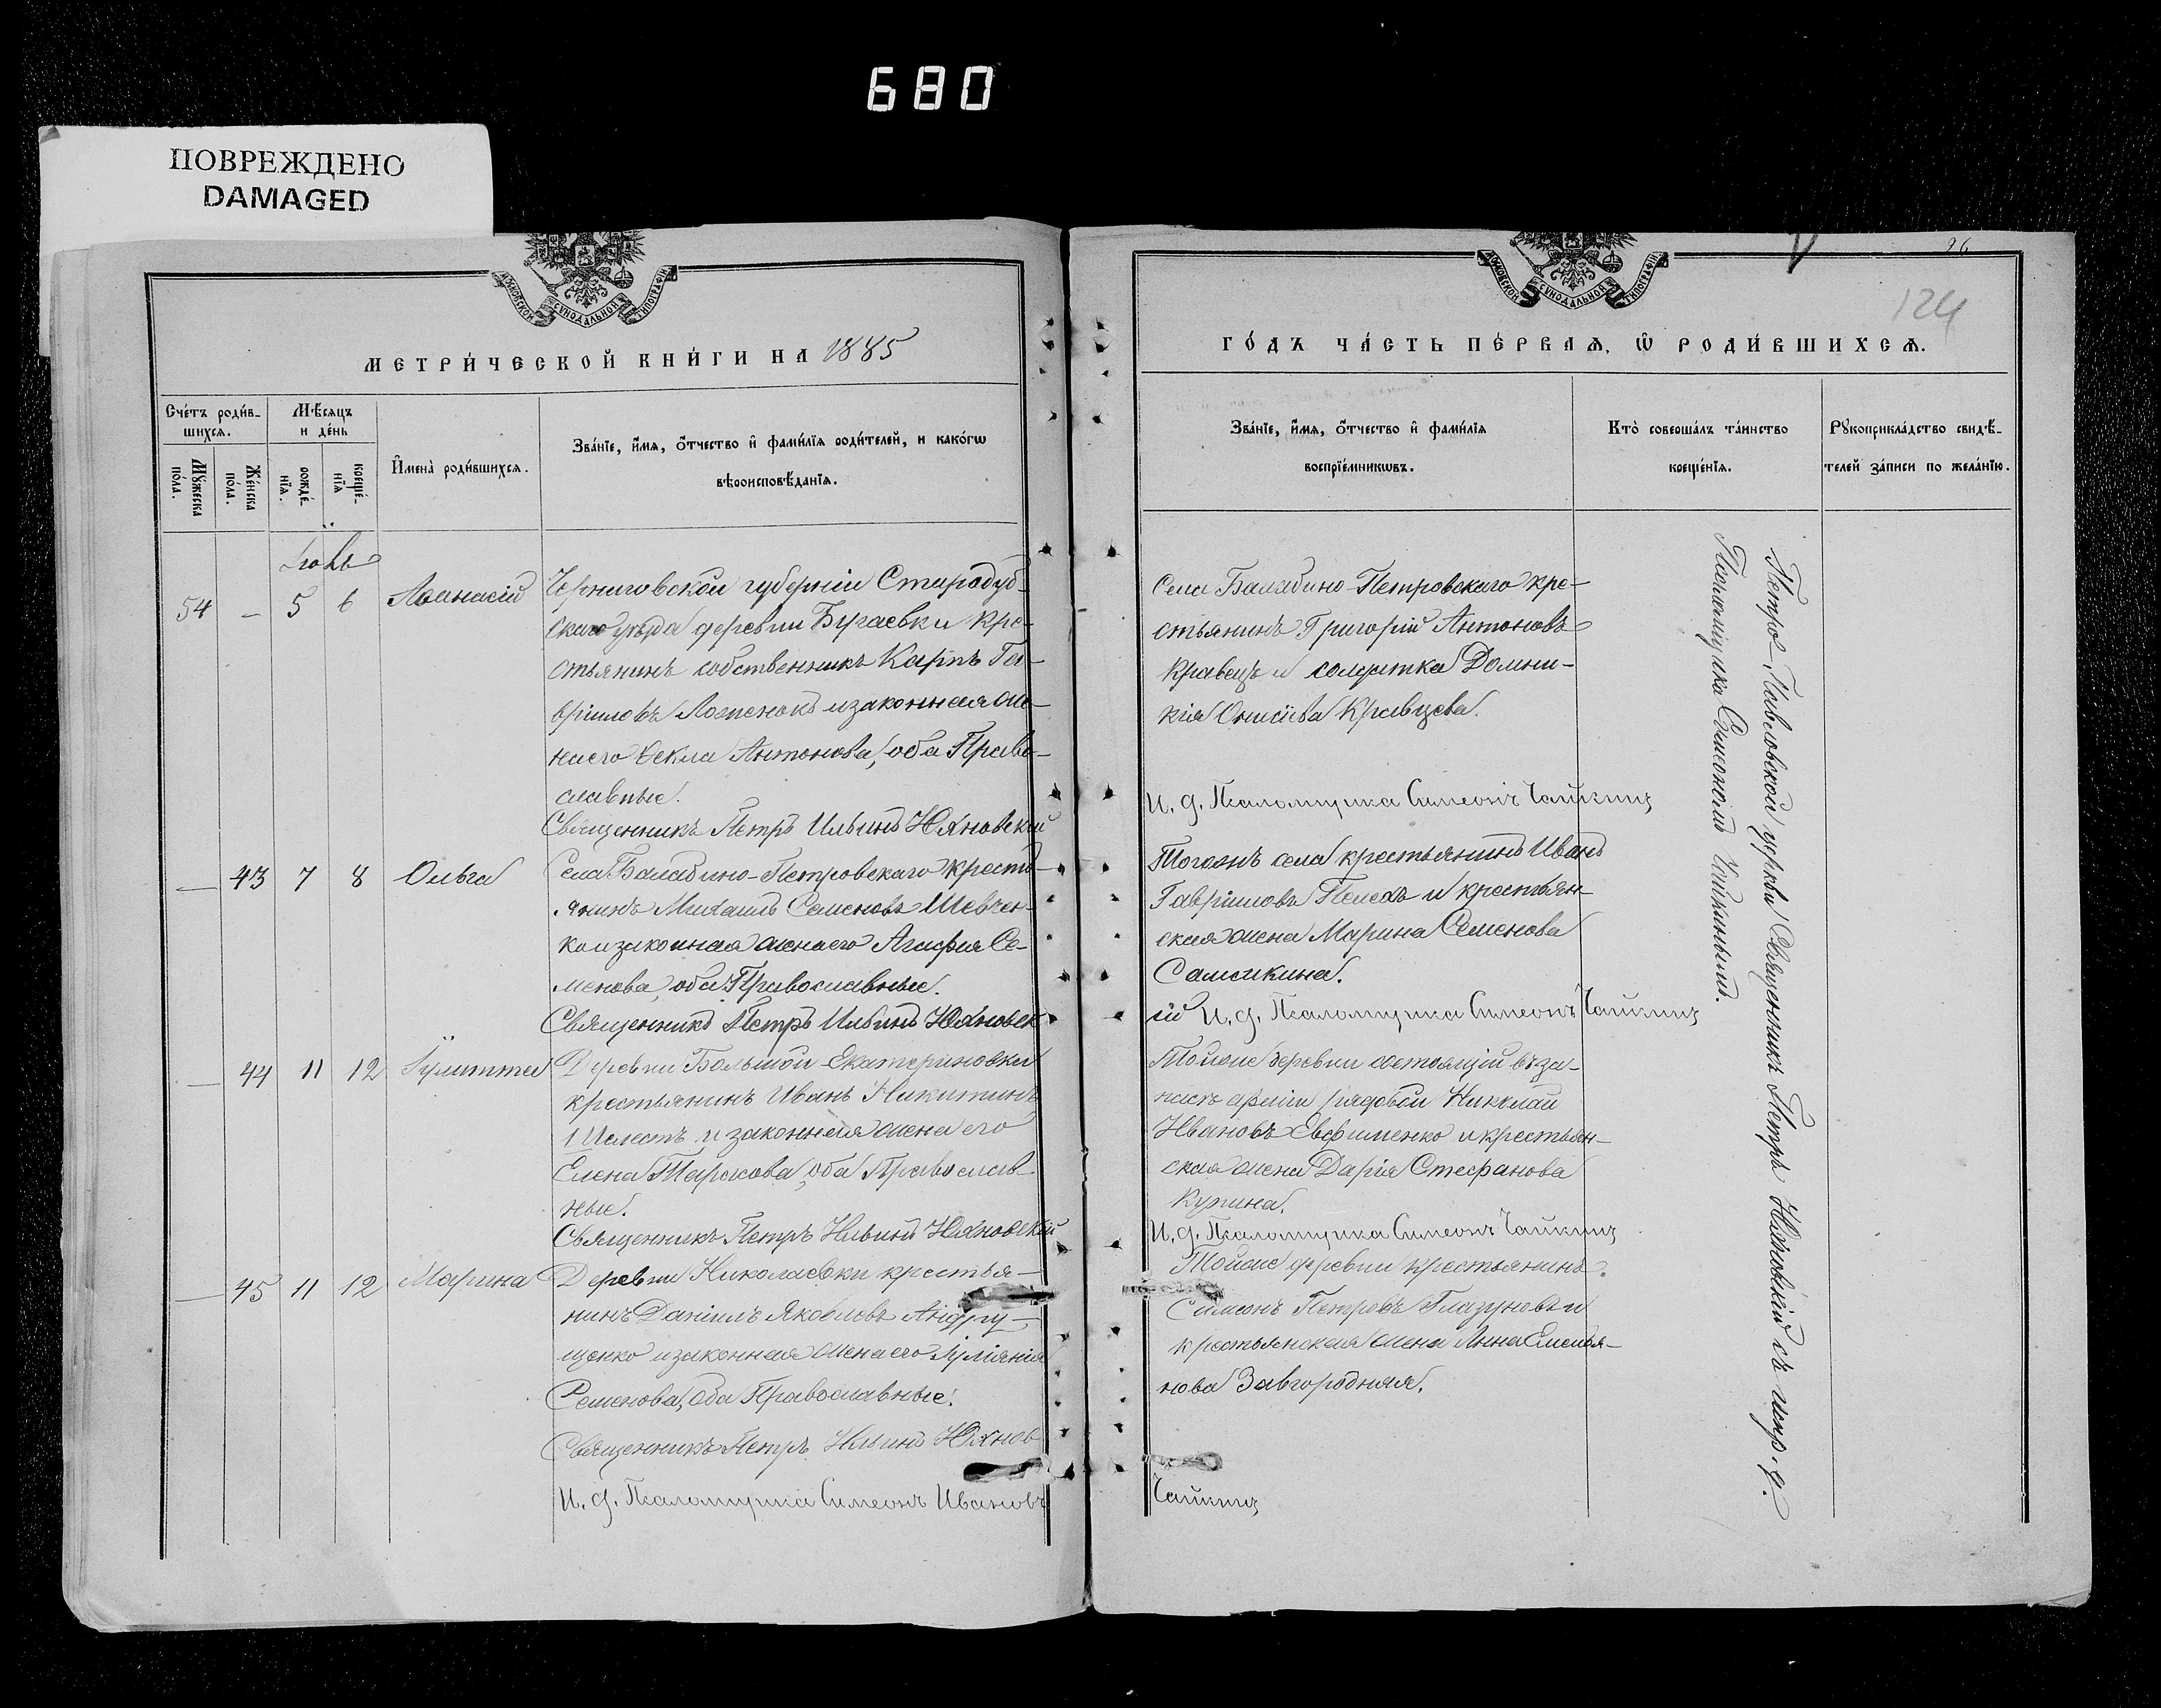 680
ПОВРЕЖДЕНО
DAMAGED
МОСКОВСКОЙ СѴНОДАЛЬНОЙ ТИПОГРАФІИ
МЕТРИ́ЧЕСКОЙ КНИ́ГИ НА 1885
Сче́тъ роди́в-
шихсѧ.
Мѣ́сяцъ
и де́нь
Мꙋ́жеска
по́ла.
Же́нска
по́ла.
рожде́-
нїѧ.
креще́-
нїѧ
И҆мена̀ роди́вшихсѧ.
Зва́нїе, и҆́мѧ, ѻ҆́тчество и҆ фами́лїѧ роди́телей, и како́гѡ
вѣроисповѣ́данїѧ.
Іюль
54 — 5 6 Аѳанасій
Черниговской губерніи Стародуб-
скаго уѣзда деревни Бугаевки кре-
стьянинъ собственникъ Карпъ Га-
вріиловъ и законная же-
на его Ѳекла Антонова, оба Право-
славные.
Священникъ Петръ Ильинъ Юхновскій
— 43 7 8 Ольга
Села Балабино-Петровскаго кресть-
янинъ Михаилъ Семеновъ Шевчен-
ко и законная жена его Агафія Се-
менова, оба Православные.
Священникъ Петръ Ильинъ Юхновск
— 44 11 12 Іулитта
Деревни Большой Екатериновки
крестьянинъ Иванъ Никитинъ
Шелестъ и законная жена его
Елена Тарасова, оба Православ
ные.
Священникъ Петръ Ильинъ Юхновскій
— 45 11 12 Марина
Деревни Николаевки крестья-
нинъ Даніилъ Яковлевъ Андру-
щенко и законная жена его Іуліанія
Семенова, оба Православные.
Священникъ Петръ Ильинъ Юхнов
И. д. Псаломщика Симеонъ Ивановъ
26
124
МОСКОВСКОЙ СѴНОДАЛЬНОЙ ТИПОГРАФІИ
ГО́ДЪ ЧА́СТЬ ПЕ́РВАѦ, Ѡ҆ РОДИ́ВШИХСѦ.
Зва́нїе, и҆́мѧ, ѻ҆́тчество и҆ фами́лїѧ
воспрїе́мникѡвъ.
Кто̀ соверша́лъ та́инство
креще́нїѧ.
Рꙋкоприкла́дство свидѣ́-
телей за́писи по жела́нїю.
Села Балабино-Петровскаго кре-
стьянинъ Григорій Антоновъ
Кравецъ и солдатка Домни-
кія Онисіева Кравцева.
И. д. Псаломщика Симеонъ Чайкинъ
Тогожъ села крестьянинъ Иванъ
Гавріиловъ Пелехъ и крестьян-
ская жена Марина Семенова
Самсикина.
ій И. д. Псаломщика Симеонъ Чайкинъ
Тойже деревни состоящій въ за-
пасѣ арміи рядовой Николай
Ивановъ Евфименко и крестьян-
ская жена Дарія Стефанова
Купина.
И. д. Псаломщика Симеонъ Чайкинъ
Тойже деревни крестьянинъ
Симеонъ Петровъ Глазуновъ и
крестьянская жена Анна Емелья-
нова Завгородняя.
Чайкинъ
Петро-Павловской церкви Священникъ Петръ Юхновскій съ испр. д.
Псаломщика Симеономъ Чайкинымъ.